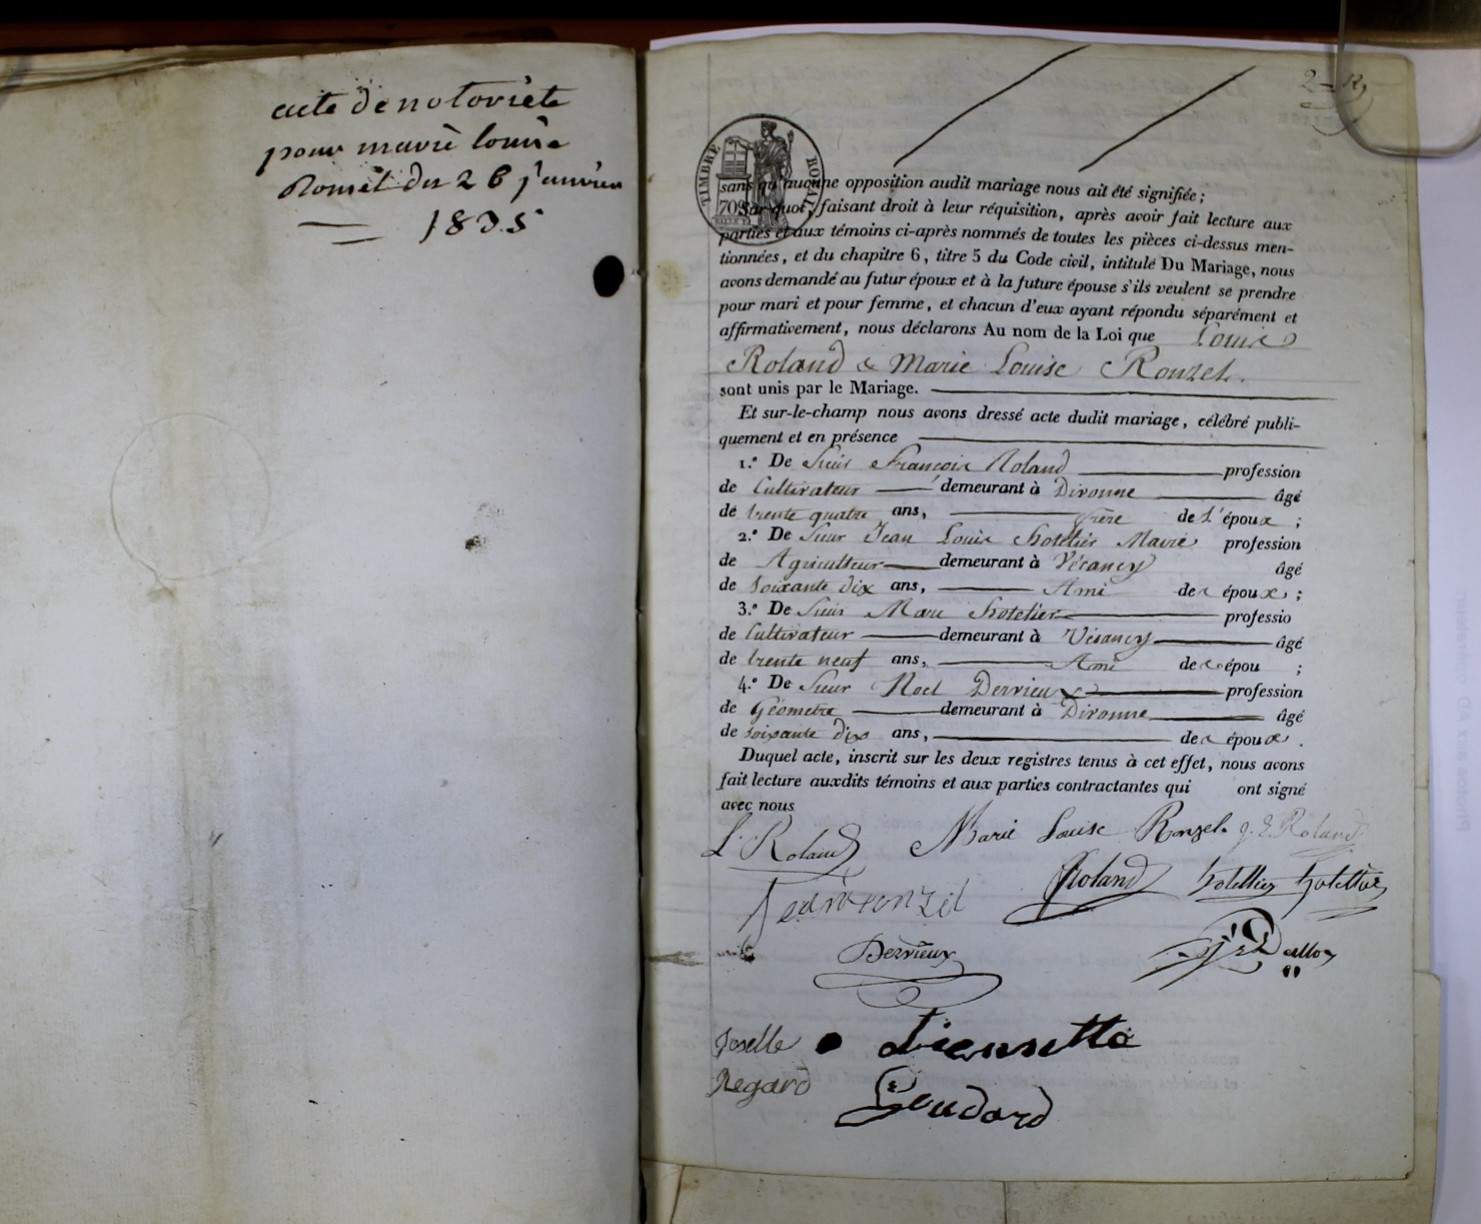 acte de notoriète
pour marie louise
Romel du 26 janvier
1835
2
TIMBRE ROYAL
70
sans qu'aucune opposition audit mariage nous ait été signifiée ;
Sur quoi, faisant droit à leur réquisition, après avoir fait lecture aux
parties et aux témoins ci-après nommés de toutes les pièces ci-dessus men-
tionnées, et du chapitre 6, titre 5 du Code civil, intitulé Du Mariage, nous
avons demandé au futur époux et à la future épouse s'ils veulent se prendre
pour mari et pour femme, et chacun d'eux ayant répondu séparément et
affirmativement, nous déclarons Au nom de la Loi que Louis
Roland & Marie Louise Ronzel.
sont unis par le Mariage.
Et sur-le-champ nous avons dressé acte dudit mariage, célébré publi-
quement et en présence
1.º De Sieur François Roland profession
de Cultivateur demeurant à Divonne âgé
de trente quatre ans, frère de l'époux ;
2.º De Sieur Jean Louis hotelier Maire profession
de Agriculteur demeurant à Vésancy âgé
de soixante dix ans, Ami des époux ;
3.º De Sieur Marc hotelier professio
de Cultivateur demeurant à Vésancy âgé
de trente neuf ans, Ami des épou ;
4.º De Sieur Noel Derrieux profession
de Géometre demeurant à Divonne âgé
de soixante dix ans, des époux .
Duquel acte, inscrit sur les deux registres tenus à cet effet, nous avons
fait lecture auxdits témoins et aux parties contractantes qui ont signé
avec nous
L. Roland Marie Louise Ronzel. j. L Roland
Jean ronzel Roland hotellier hotellier
Derrieux
Joselle
Regard Goudard